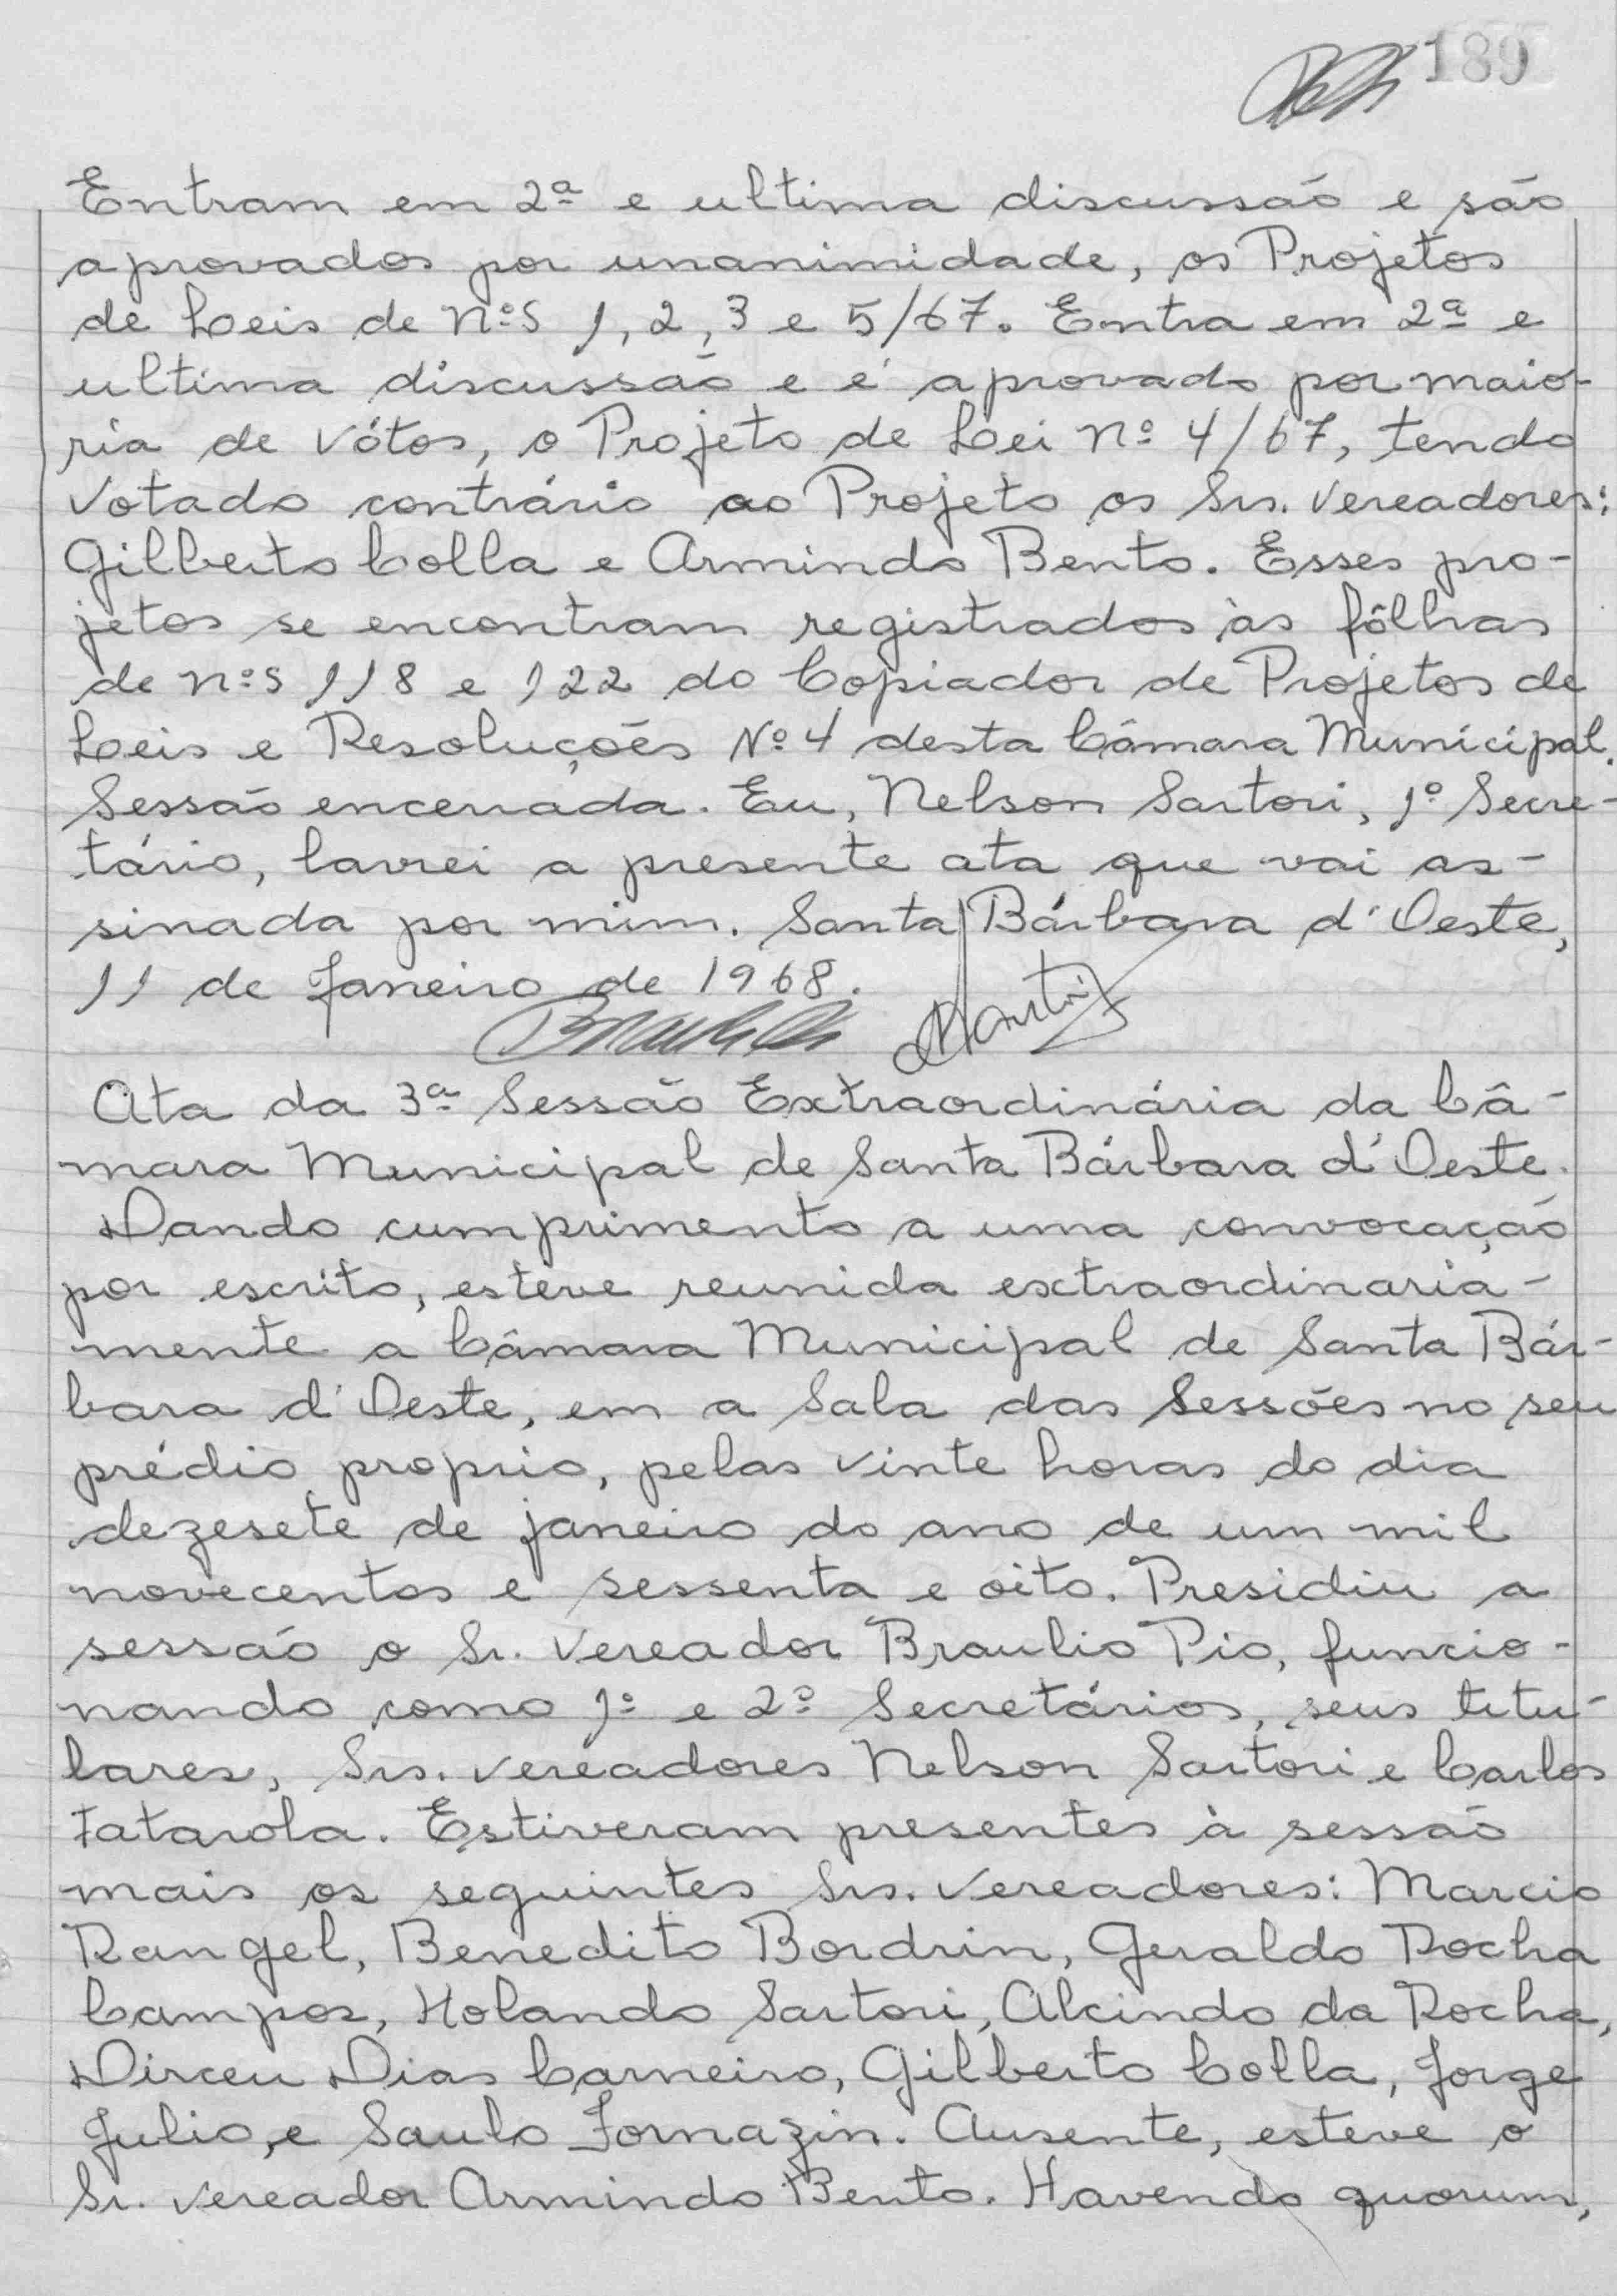 189
Entram em 2ª e ultima discussão e são
aprovados por unanimidade, os Projetos
de Leis de Nºs 1, 2, 3 e 5/67. Entra em 2ª e
ultima discussão e é aprovado por maio-
ria de vótos, o Projeto de Lei Nº 4/67, tendo
votado contrário ao Projeto os Srs. Vereadores:
Gilberto Colla e Armindo Bento. Esses pro-
jetos se encontram registrados às fôlhas
de nºs 118 e 122 do Copiador de Projetos de
Leis e Resoluções Nº 4 desta Câmara Municipal.
Sessão encerrada. Eu, Nelson Sartori, 1º Secre-
tário, lavrei a presente ata que vai as-
sinada por mim. Santa Bárbara d'Oeste,
11 de Janeiro de 1968.
Ata da 3ª Sessão Extraordinária da Câ-
mara Municipal de Santa Bárbara d'Oeste.
Dando cumprimento a uma convocação
por escrito, esteve reunida extraordinaria-
mente a Câmara Municipal de Santa Bár-
bara d'Oeste, em a Sala das Sessões no seu
prédio proprio, pelas vinte horas do dia
dezesete de janeiro do ano de um mil
novecentos e sessenta e oito. Presidiu a
sessão o Sr. Vereador Braulio Pio, funcio-
nando como 1º e 2º Secretários, seus titu-
lares, Srs. vereadores Nelson Sartori e Carlos
Fatarola. Estiveram presentes à sessão
mais os seguintes Srs. Vereadores: Marcio
Rangel, Benedito Bordrin, Geraldo Rocha
Campos, Holando Sartori, Alcindo da Rocha,
Dirceu Dias Carneiro, Gilberto Colla, Jorge
Julio, e Saulo Fornazin. Ausente, esteve o
Sr. vereador Armindo Bento. Havendo quorum,